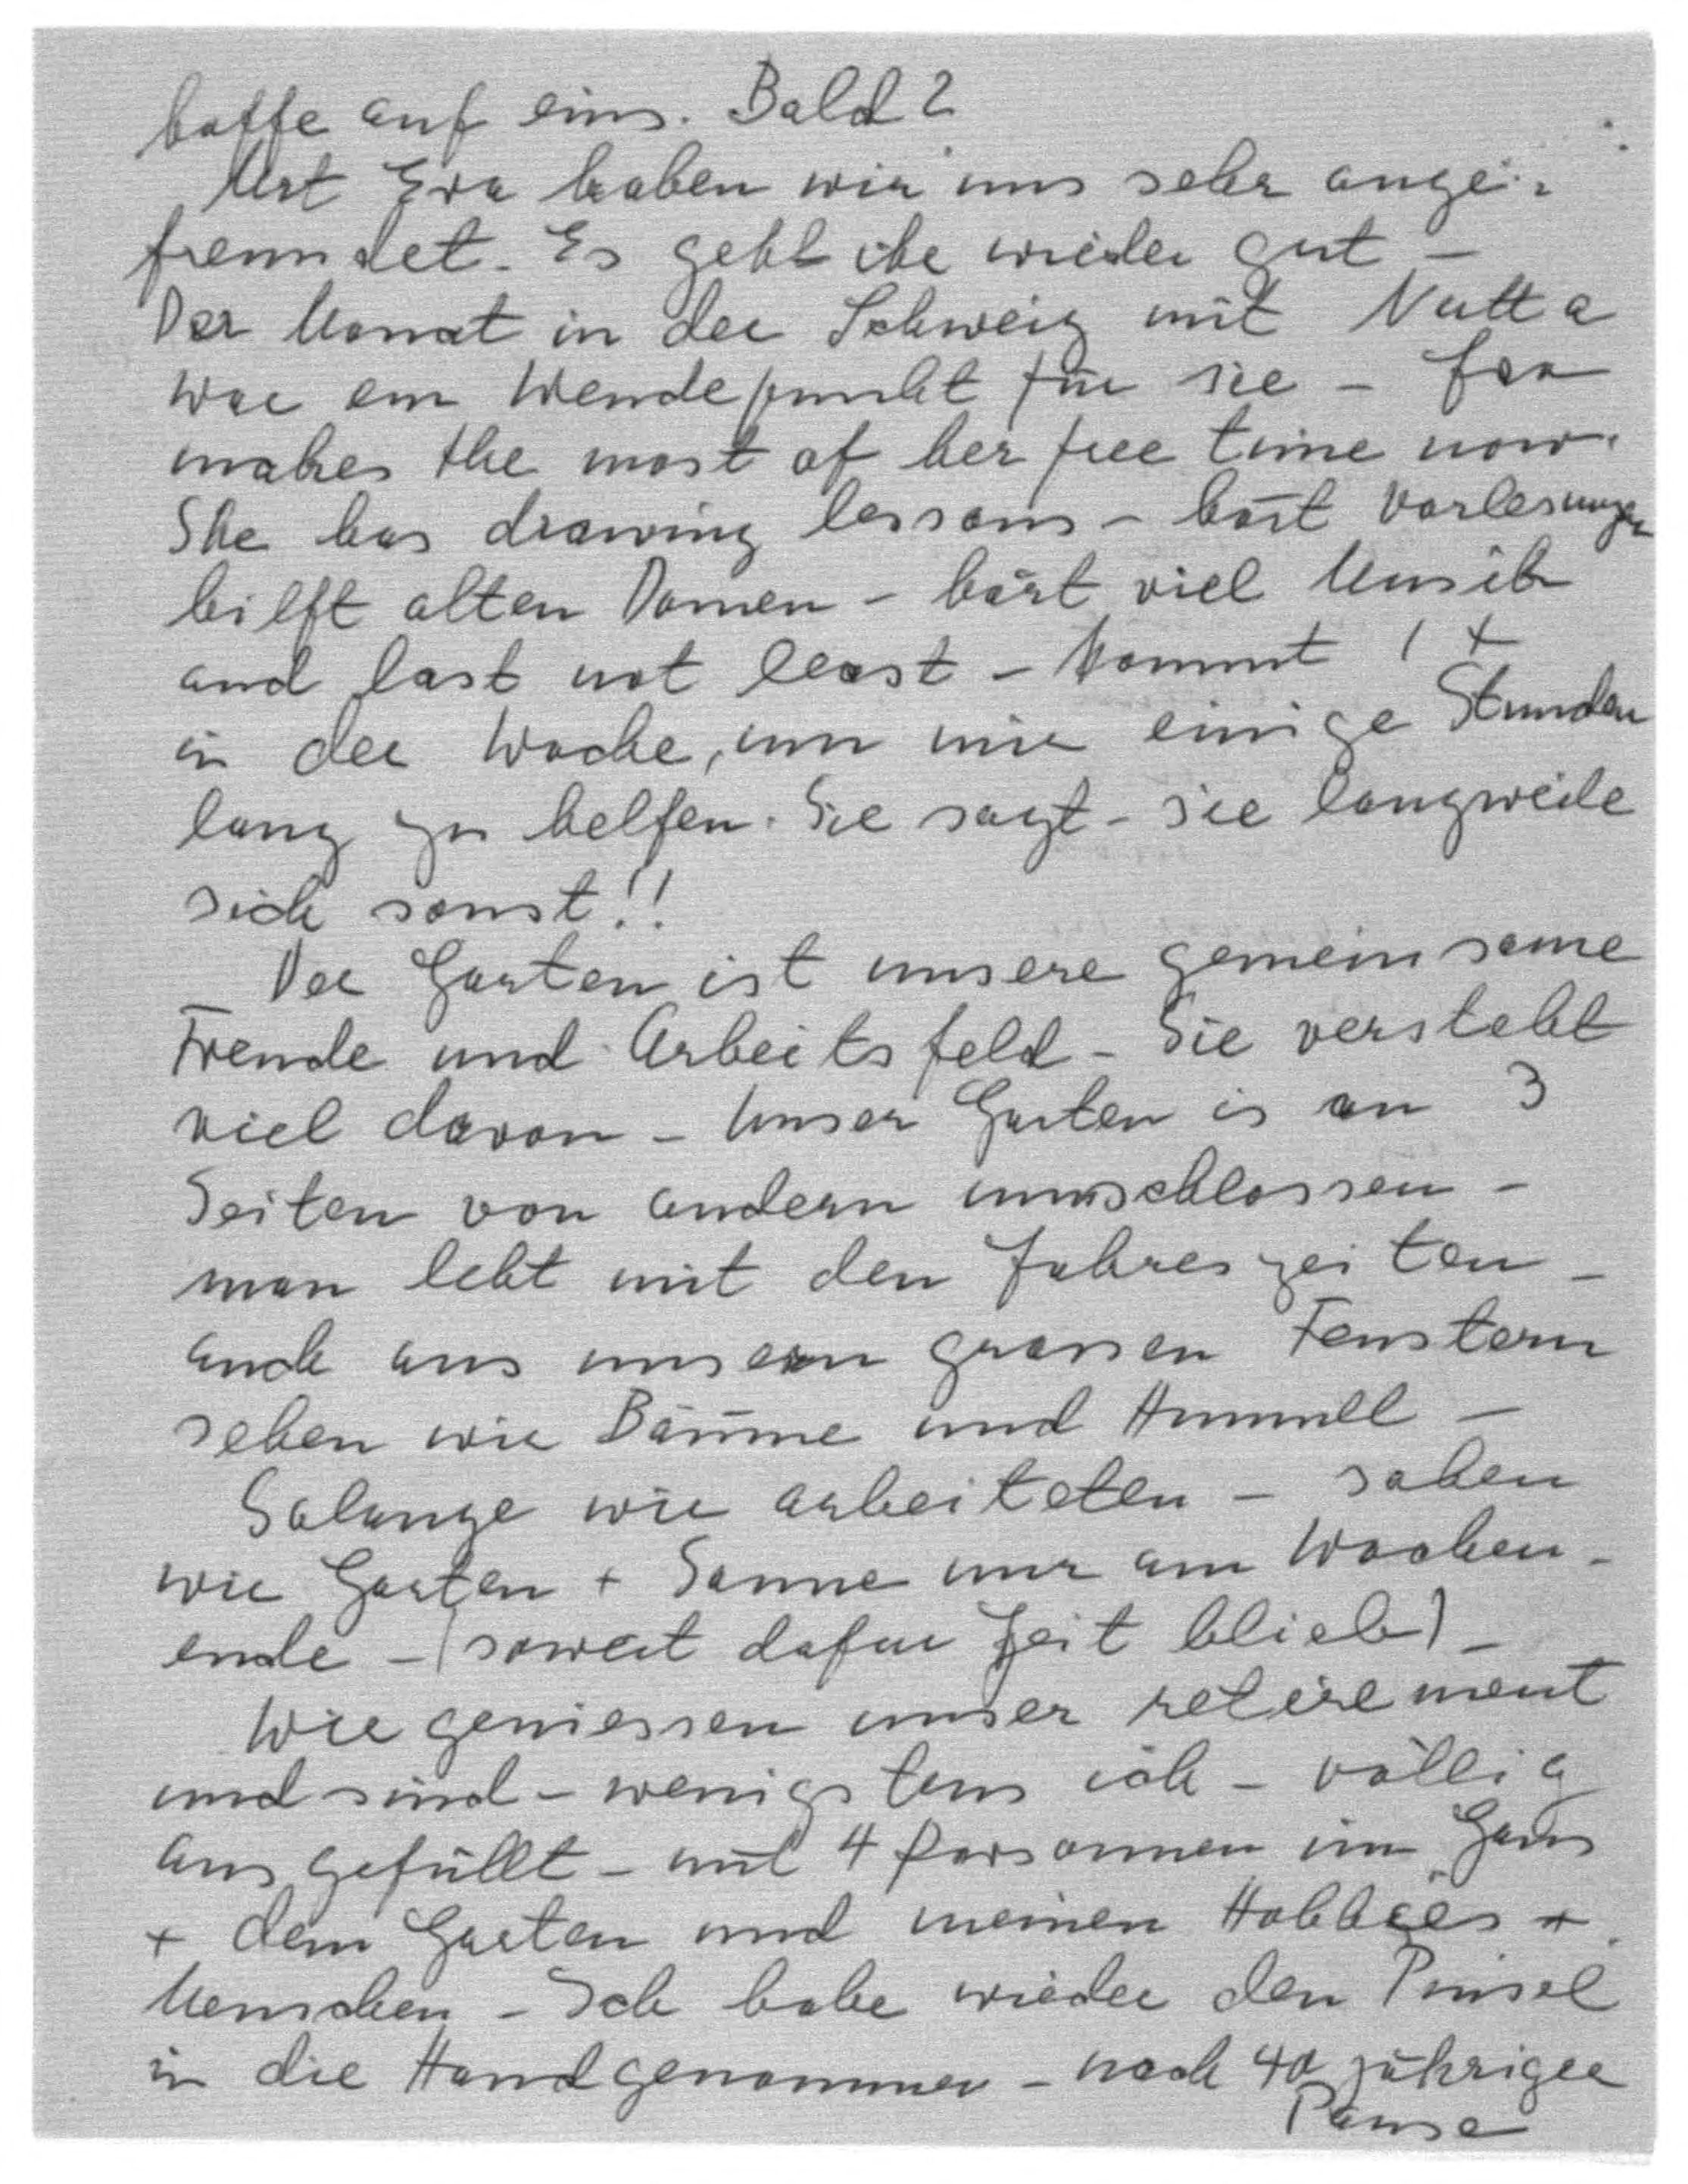 hoffe auf eins. Bald?
Mit Eva haben wir uns sehr ange-
freundet. Es geht ihr wieder gut –
Der Monat in der Schweiz mit Nutta
war ein Wendepunkt für sie – Eva
makes the most of her free time now.
She has drawing lessons – hört Vorlesungen
hilft alten Damen – hört viel Musik
and last not least – kommt 1 x
in der Woche, um mir einige Stunden
lang zu helfen. Sie sagt – sie langweile
sich sonst!!
Der Garten ist unsere gemeinsame
Freude und Arbeitsfeld – Sie versteht
viel davon – Unser Garten is an 3
Seiten von andern umschlossen –
man lebt mit den Jahreszeiten –
auch aus unsern grossen Fenstern
sehen wir Bäume und Himmel –
Solange wir arbeiteten – sahen
wir Garten + Sonne nur am Wochen-
ende – (soweit dafur Zeit blieb) –
Wir geniessen unser retirement
und sind – wenigstens ich – völlig
ausgefüllt – mit 4 Personnen im Haus
+ dem Garten und meinen Hobbies +
Menschen – Ich habe wieder den Pinsel
in die Hand genommen – nach 40 jähriger
Pause